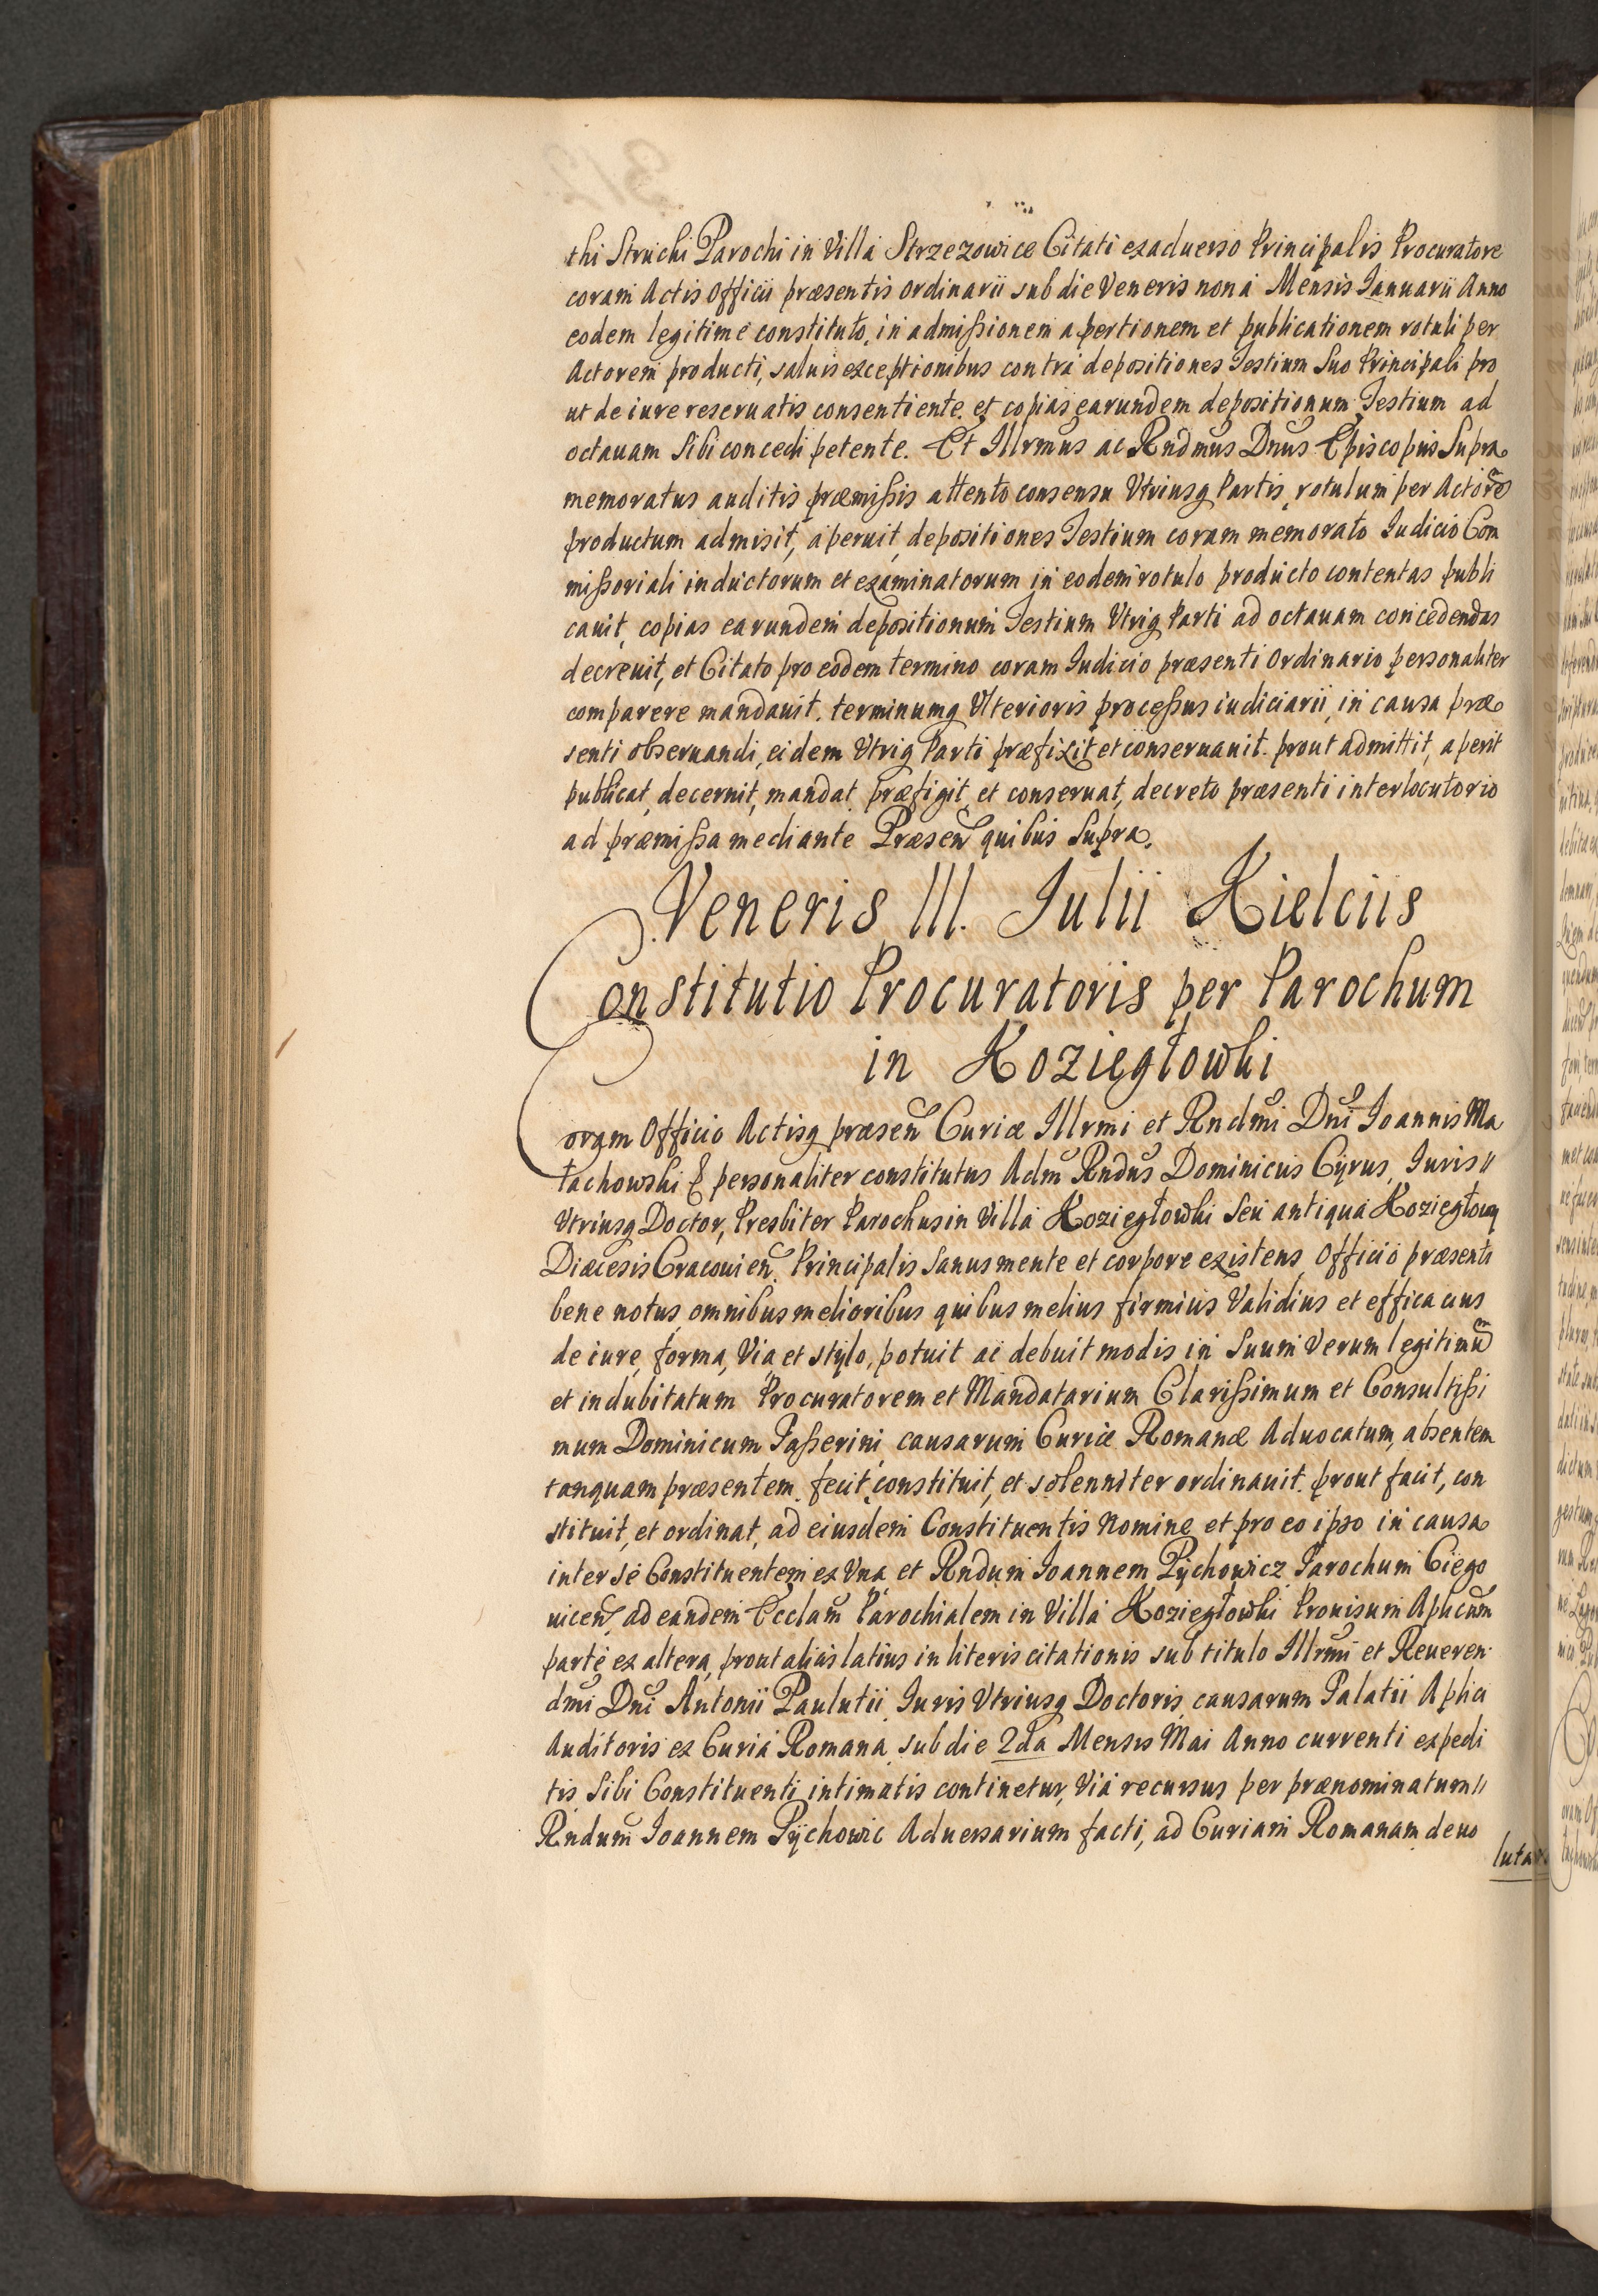 thi Struchi Parochi in Villa Strzezowice Citati ex aduerso Principalis Procuratore
coram Actis Officii præsentis ordinarii sub die Veneris nona Mensis Ianuarii Anno
eodem legitime constituto, in admissionem apertionem et publicationem rotuli per
Actorem producti, saluis exceptionibus contra depositiones Testium Suo Principali pro
ut de iure reseruatis consentiente et copias earundem depositionum Testium ad
octauam Sibi concedi petente. Et Illrmus ac Rndmus Dnus Episcopus Supra
memoratus auditis præmissis attento consensu Vtriusq Partis rotulum per Actorē
productum admisit, aperuit, depositiones Testium coram memorato Iudicio Com
missoriali inductorum et examinatorum in eodem rotulo producto contentas publi
cauit, copias earundem depositionum Testium Vtriq Parti ad octauam concedendas
decreuit, et Citato pro eodem termino coram Iudicio præsenti Ordinario personaliter
comparere mandauit. terminumq Vlterioris processus iudiciarii, in causa præ
senti obseruandi, eidem Vtriq Parti præfixit et conseruauit. prout admittit, aperit
publicat, decernit, mandat, præfigit, et conseruat, decreto præsenti interlocutorio
ad præmissa mediante Præsen quibus Supra.
Veneris III. Iulii Kielciis
Constitutio Procuratoris per Parochum
in Koziegłowki
Coram Officio Actisq præsen Curiæ Illrmi et Rndmi Dni Ioannis Ma
łachowski & personaliter constitutus Adm Rndus Dominicus Cyrus, Iuris //
Vtriusq Doctor, Presbiter Parochus in Villa Koziegłowki Seu antiqua Koziegłowy
Diæcesis Cracouien Principalis Sanus mente et corpore existens Officio præsenti
bene notus omnibus melioribus quibus melius firmius Validius et efficacius
de iure, forma, Via et stylo, potuit ac debuit modis in Suum Verum legitimū
et indubitatum Procuratorem et Mandatarium Clarissimum et Consultissi
mum Dominicum Passerini causarum Curiæ Romanæ Aduocatum, absentem
tanquam præsentem fecit constituit, et solenniter ordinauit. prout facit, con
stituit, et ordinat, ad eiusdem Constituentis Nomine et pro eo ipso in causa
inter se Constituentem ex Vna et Rndum Ioannem Pychowicz Parochum Ciego
uicen, ad eandem Ecclam Parochialem in Villa Koziegłowki Prouisum Aplicum
parte ex altera, prout alias latius in literis citationis sub titulo Illrmi et Reueren
dmi Dni Antonii Paulutii Iuris Vtriusq Doctoris, causarum Palatii Aplici
Auditoris ex Curia Romana, sub die 2da Mensis Mai Anno currenti expedi
tis Sibi Constituenti intimatis continetur, Via recursus per prænominatum //
Rndum Ioannem Pychowic Aduersarium facti, ad Curiam Romanam deuo